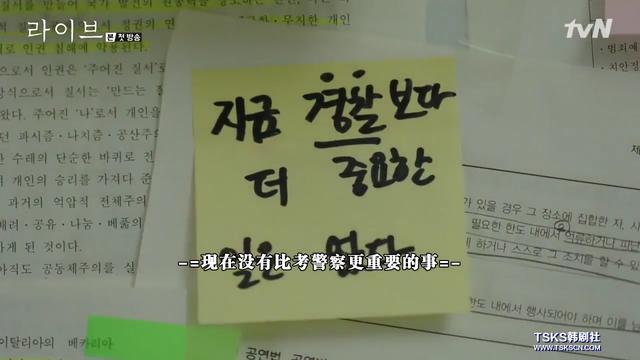 라이브
본 첫 방송
tvN
지금 경찰보다
더 중요한
일은 없다
-=现在没有比考警察更重要的事=-
으로서 인권은 '주어진 질서'로
방식으로서 질서는 '만드는 질
왔다. 주어진 '나'로서 개인을
던 파시즘·나치즘·공산주의
수레의 단순한 바퀴로 전
개인의 승리를 가져다 준
과거의 억압적 전체주의
배려·공유·나눔·베풂의
하게 된 것이다.
아직도 공동체주의를 실
이탈리아의 베카리아
범죄예
치안정
가 있을 경우 그 장소에 집합한 자, 사
필요한 한도 내에서 억류하거나 피난
게 하거나 스스로 그 조치를 할 수 있
한도 내에서 행사되어야 하며 이를 남
공연법
TSKS韩剧社
WWW.TSKSCN.COM